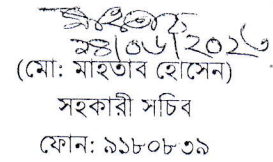 ২৪/০৬/২০২৩
(মো: মাহতাব হোসেন)
সহকারী সচিব
ফোন: ৯১৮০৮৩৯